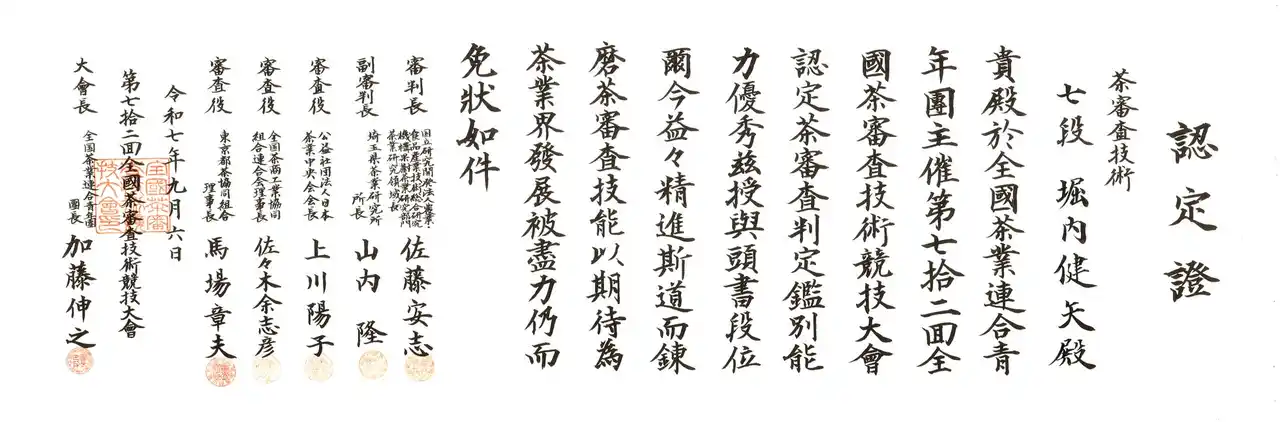 認定證
茶審査技術
七段 堀内健矢殿
貴殿於全國茶業連合青
年團主催第七拾二回全
國茶審査技術競技大會
認定茶審査判定鑑別能
力優秀茲授與頭書段位
爾今益々精進斯道而錬
磨茶審査技能以期待為
茶業界發展被盡力仍而
免狀如件
審判長 国立研究開発法人農業・
食品産業技術総合研究
機構果樹茶業研究部門
茶業研究領域長 佐藤安志
副審判長 埼玉県茶業研究所
所長 山内 隆
審査役 公益社団法人日本
茶業中央会会長 上川陽子
審査役 全国茶商工業協同
組合連合会理事長 佐々木余志彦
審査役 東京都茶協同組合
理事長 馬場章夫
令和七年九月六日
第七拾二回全國茶審査技術競技大會
大會長 全国茶業連合青年團
團長 加藤伸之